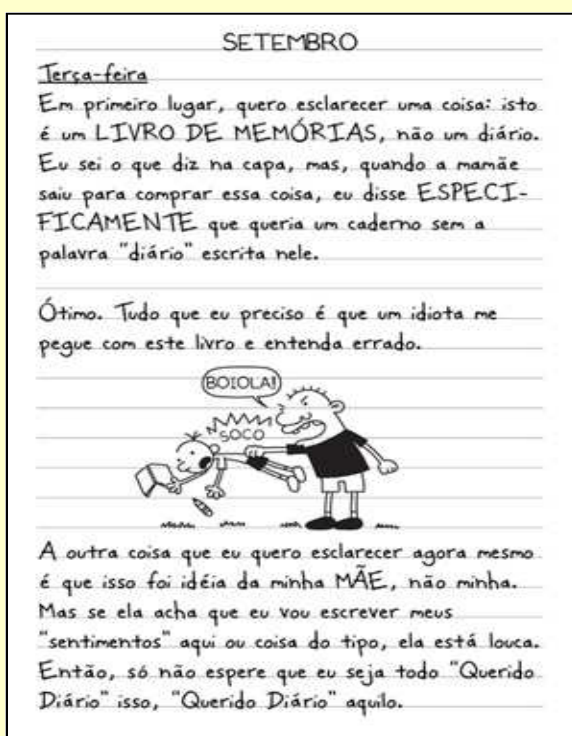 SETEMBRO
Terça-feira
Em primeiro lugar, quero esclarecer uma coisa: isto
é um LIVRO DE MEMÓRIAS, não um diário.
Eu sei o que diz na capa, mas, quando a mamãe
saiu para comprar essa coisa, eu disse ESPECI-
FICAMENTE que queria um caderno sem a
palavra "diário" escrita nele.
Ótimo. Tudo que eu preciso é que um idiota me
pegue com este livro e entenda errado.
BOIOLA!
SOCO
A outra coisa que eu quero esclarecer agora mesmo
é que isso foi idéia da minha MÃE, não minha.
Mas se ela acha que eu vou escrever meus
"sentimentos" aqui ou coisa do tipo, ela está louca.
Então, só não espere que eu seja todo "Querido
Diário" isso, "Querido Diário" aquilo.